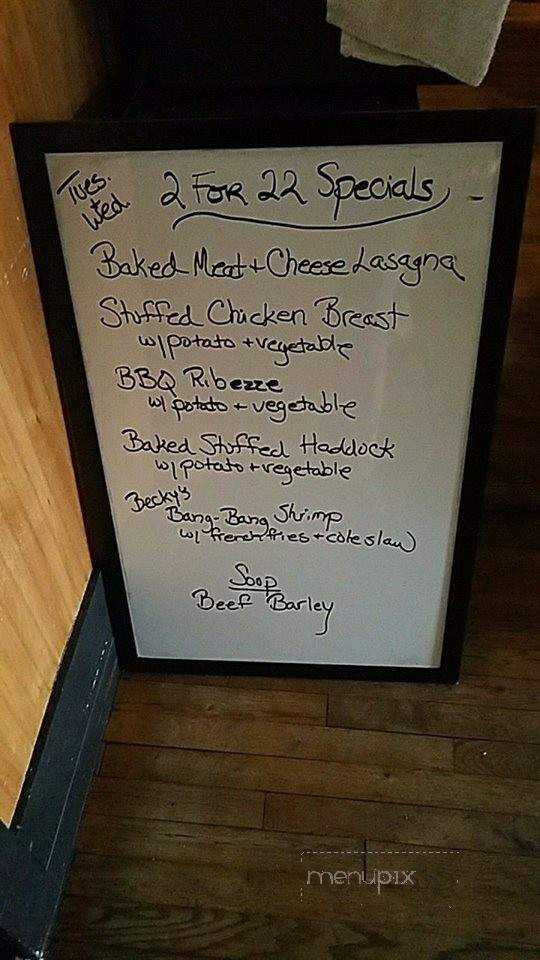 Tues.
Wed.
2 FOR 22 Specials
Baked Meat + Cheese Lasagna
Stuffed Chicken Breast
w/ potato + vegetable
BBQ Ribezze
w/ potato + vegetable
Baked Stuffed Haddock
w/ potato + vegetable
Becky's
Bang-Bang Shrimp
w/ french fries + coleslaw
Soup
Beef Barley
menupix